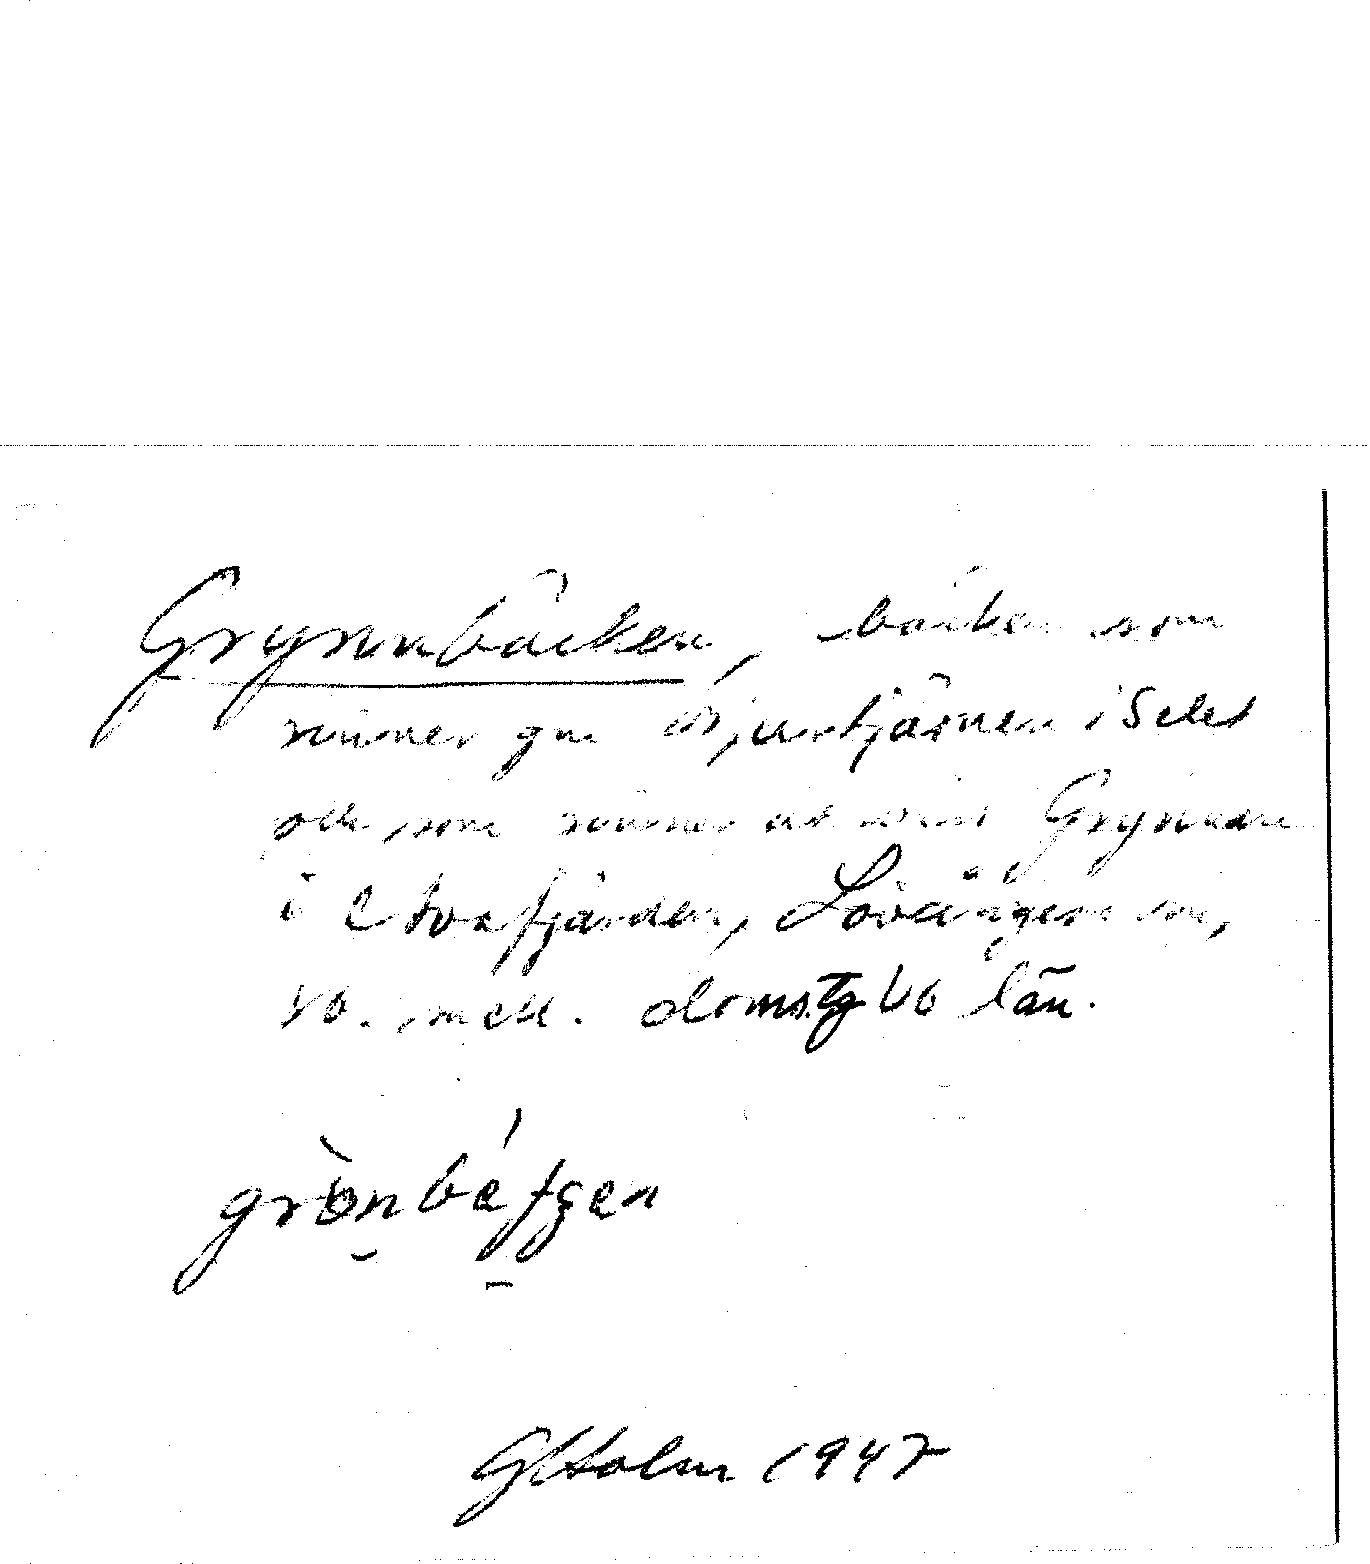 Grynnbäcken, bäcken som
rinner gm Bjurtjärnen i Selet
och som rinner ut vid Grynnan
i Avafjärden, Lövångers sn,
Vb. mell. doms. tg Vb län.
grònbétʃen
G Holm 1947